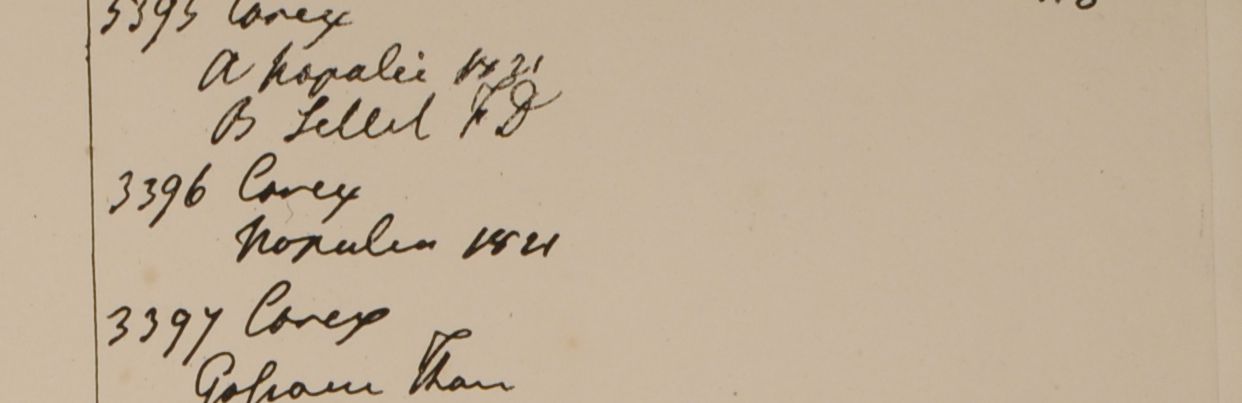 3395 Carex
A Napalia 1821
B Sellet F D
3396 Carex
Napalia 1821
3397 Carex
Gossain Than